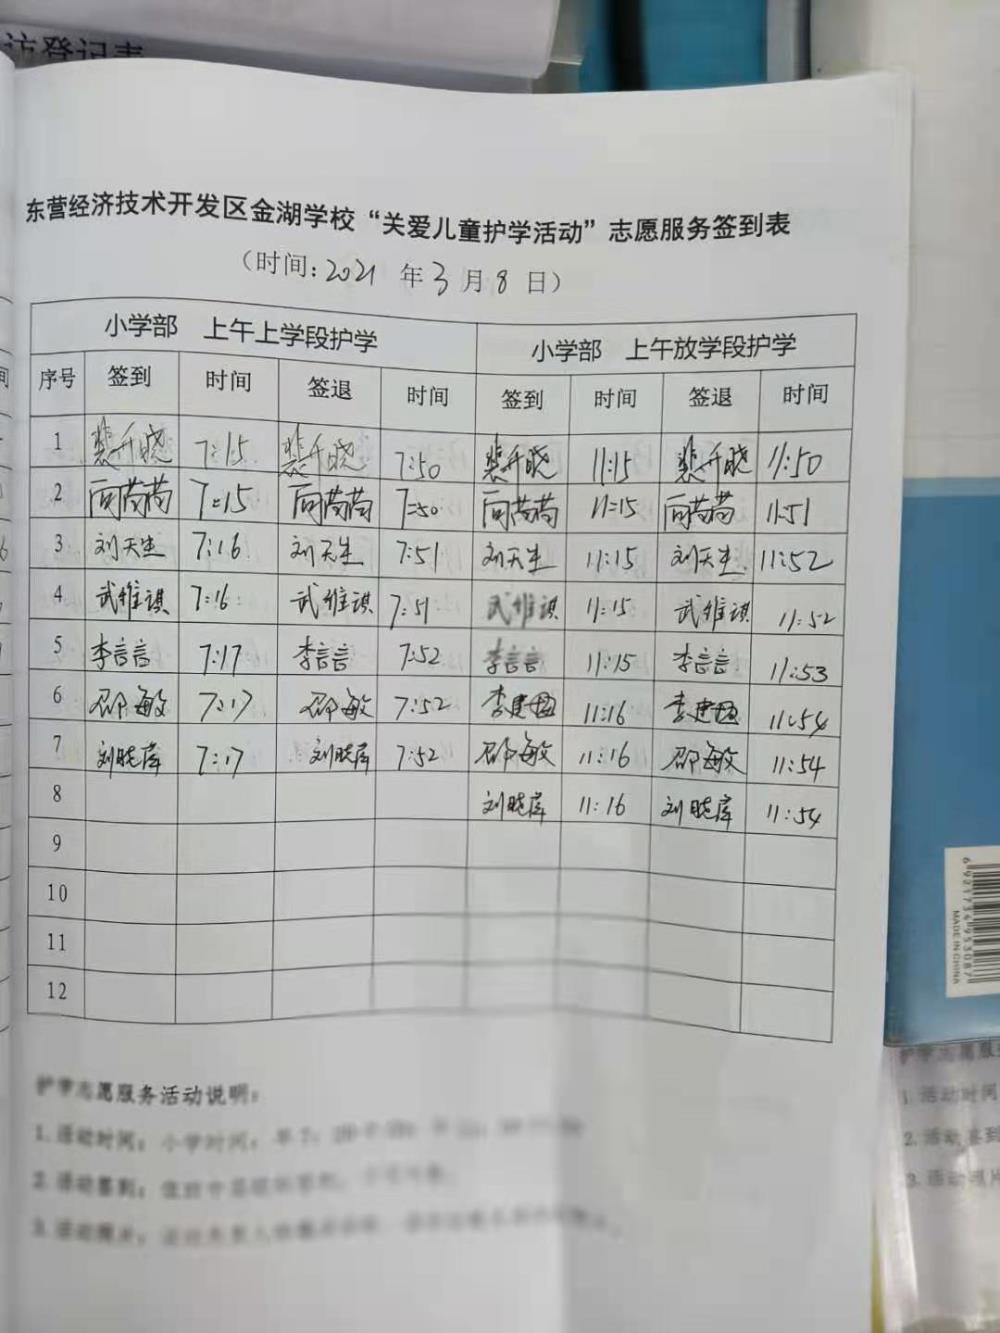 访登记表
东营经济技术开发区金湖学校“关爱儿童护学活动”志愿服务签到表
（时间:2021 年 3 月 8 日）
小学部 上午上学段护学 小学部 上午放学段护学
序号 签到 时间 签退 时间 签到 时间 签退 时间
1 裴升晓 7:15 裴升晓 7:50 裴升晓 11:15 裴升晓 11:50
2 7:15 7:50 11:15 11:51
3 刘天生 7:16 刘天生 7:51 刘天生 11:15 刘天生 11:52
4 武维祺 7:16 武维祺 7:51 武维祺 11:15 武维祺 11:52
5 李言言 7:17 李言言 7:52 李言言 11:15 李言言 11:53
6 邵敏 7:17 邵敏 7:52 11:16 11:54
7 刘晓库 7:17 刘晓库 7:52 邵敏 11:16 邵敏 11:54
8 刘晓库 11:16 刘晓库 11:54
9
10
11
12
护学志愿服务活动说明：
1.活动时间：小学时间：早7：
2.活动签到：
3.活动照片：
6921734953087
MADE IN CHINA
护学志愿服
1.活动时间
2.活动签到
3.活动照片